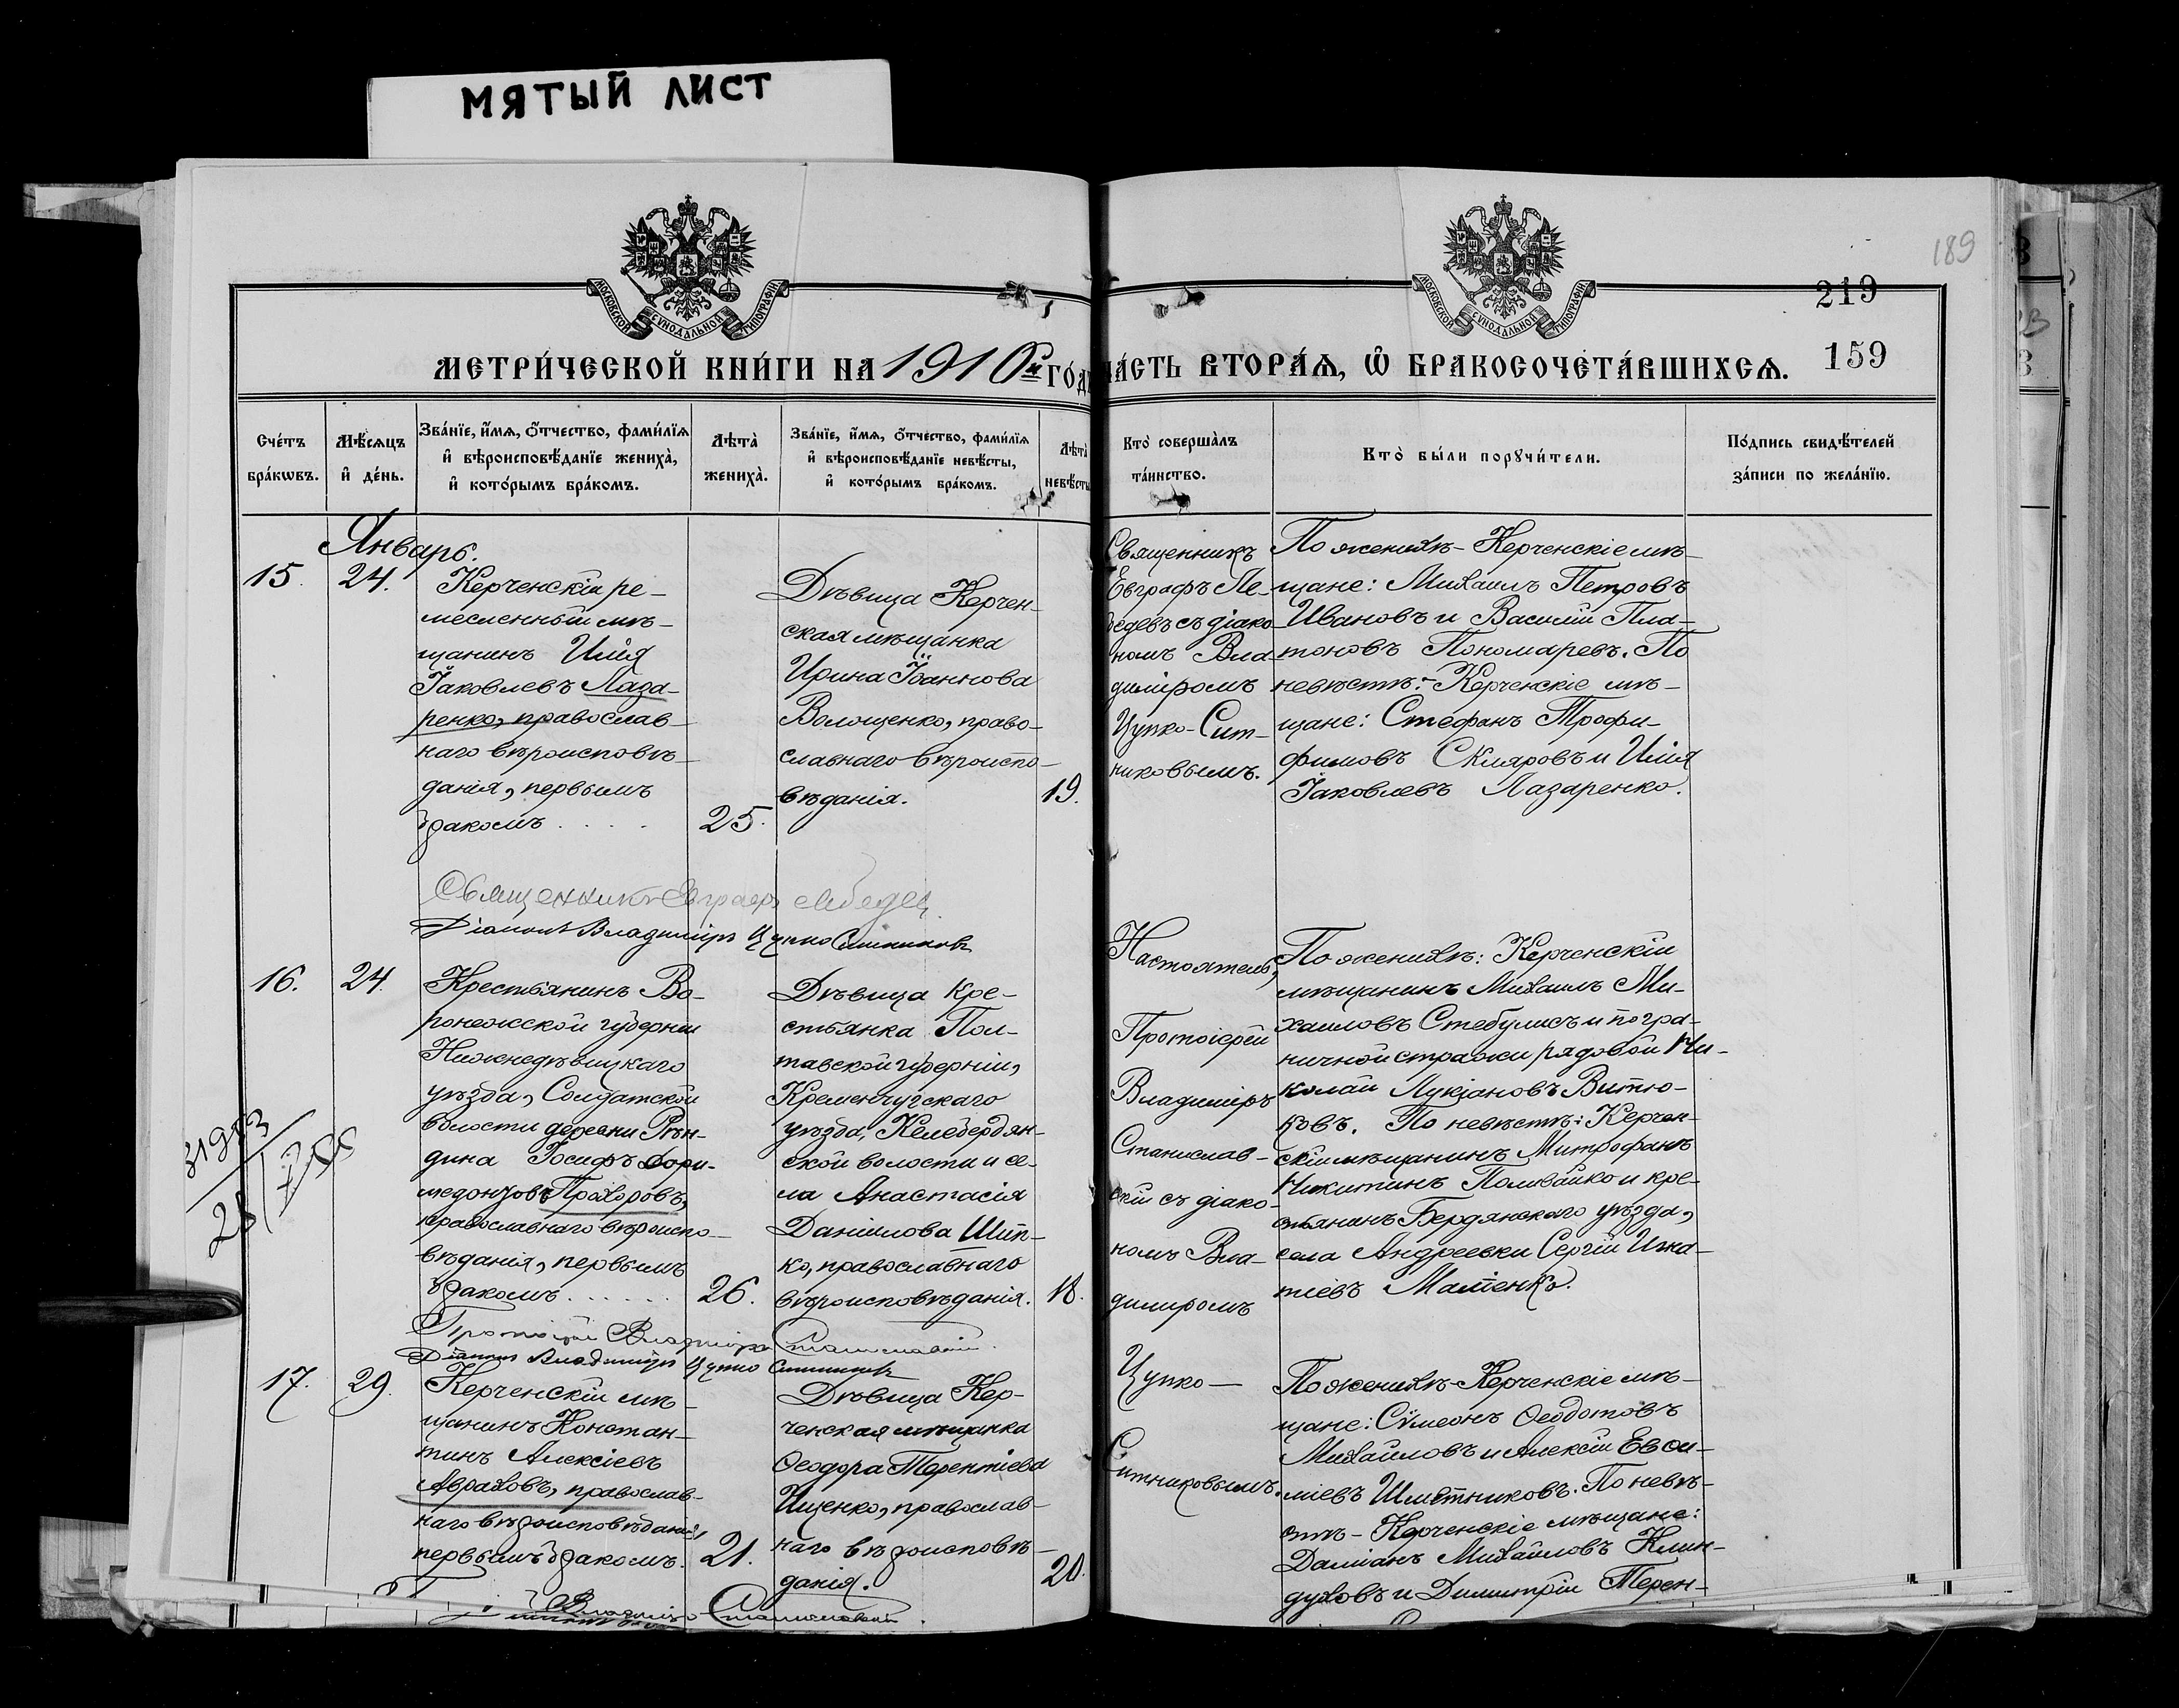 МЯТЫЙ ЛИСТ
189
219
159
МОСКОВСКОЙ СѴНОДАЛЬНОЙ ТИПОГРАФІИ
МОСКОВСКОЙ СѴНОДАЛЬНОЙ ТИПОГРАФІИ
МЕТРИ́ЧЕСКОЙ КНИ́ГИ НА 1910й ГО́ДЪ
ЧА́СТЬ ВТОРА́Ѧ, Ѽ БРАКОСОЧЕТА́ВШИХСѦ.
Сче́тъ бра́кѡвъ.
Мѣ́сѧцъ и҆ де́нь.
Зва́нїе, и҆́мѧ, о҆́тчество, фами́лїѧ
и҆ вѣроисповѣ́данїе жениха̀,
и҆ кото́рымъ бра́комъ.
Лѣта̀ жениха̀.
Зва́нїе, и҆́мѧ, о҆́тчество, фами́лїѧ
и҆ вѣроисповѣ́данїе невѣ́сты,
и҆ кото́рымъ бра́комъ.
Лѣта̀ невѣ́сты
Кто̀ соверша̀лъ
та́инство.
Кто̀ бы́ли порꙋчи́тели.
По́дпись свидѣ́телей
за́писи по жела́нїю.
Январь.
15.
24.
Керченскій ре-
месленный мѣ-
щанинъ Илія
Іаковлевъ Лаза-
ренко, православ-
наго вѣроисповѣ-
данія, первымъ
бракомъ . . . .
25.
Дѣвица Керчен-
ская мѣщанка
Ирина Іоаннова
Волощенко, право-
славнаго вѣроиспо-
вѣданія.
19.
Священникъ
Евграфъ Ле-
бедевъ съ діако-
номъ Вла-
диміромъ
Цупко-Сит-
никовымъ.
По женихѣ - Керченскіе мѣ-
щане: Михаилъ Петровъ
Ивановъ и Василій Пла-
тоновъ Пономаревъ. По
невѣстѣ: - Керченскіе мѣ-
щане: Стефанъ Трофи-
фимовъ Скляровъ и Илія
Іаковлевъ Лазаренко.
Священникъ Евграфъ Лебедев
Діаконъ Владиміръ Цупко Ситниковъ
16.
24.
Крестьянинъ Во-
ронежской губерніи
Нижнедѣвицкаго
уѣзда, Солдатской
волости деревни
дина Іосифъ Дори-
медонтовъ Прохоровъ,
православнаго вѣроиспо-
вѣданія, первымъ
бракомъ . . . . . .
26.
Дѣвица кре-
стьянка Пол-
тавской губерніи,
Кременчугскаго
уѣзда, Келебердян-
ской волости и се-
ла Анастасія
Даніилова Шип-
ко, православнаго
вѣроисповѣданія.
18.
Настоятель,
Протоіерей
Владиміръ
Станислав-
скій съ діако-
номъ Вла-
димиромъ
Цупко-
Ситниковымъ.
По женихѣ: Керченскій
мѣщанинъ Михаилъ Ми-
хаиловъ Стебулисъ и погра-
ничной стражи рядовой Ни-
колай Лукіановъ Витю-
ковъ. По невѣстѣ: Керчен-
скій мѣщанинъ Митрофанъ
Никитинъ Поливайко и кре-
стьянинъ Бердянскаго уѣзда,
села Андреевки Сергій Игна-
тіевъ Матіенко.
Протоіерей Владиміръ Станиславскій.
Діаконъ Владиміръ Цупко Ситниковъ
17.
29.
Керченскій мѣ-
щанинъ Констан-
тинъ Алексіевъ
Авраховъ, православ-
наго вѣроисповѣданія,
первымъ бракомъ.
21.
Дѣвица Кер-
ченская мѣщанка
Ѳеодора Терентіева
Ищенко, православ-
наго вѣроисповѣ-
данія.
20.
По женихѣ - Керченскіе мѣ-
щане: Сѵмеонъ Ѳеодотовъ
Михайловъ и Алексій
міевъ Шмѣтниковъ. По невѣ-
стѣ - Керченскіе мѣщане:
Даміанъ Михайловъ Клин-
духовъ и Димитрій Терен-
Владиміръ Станиславскій.